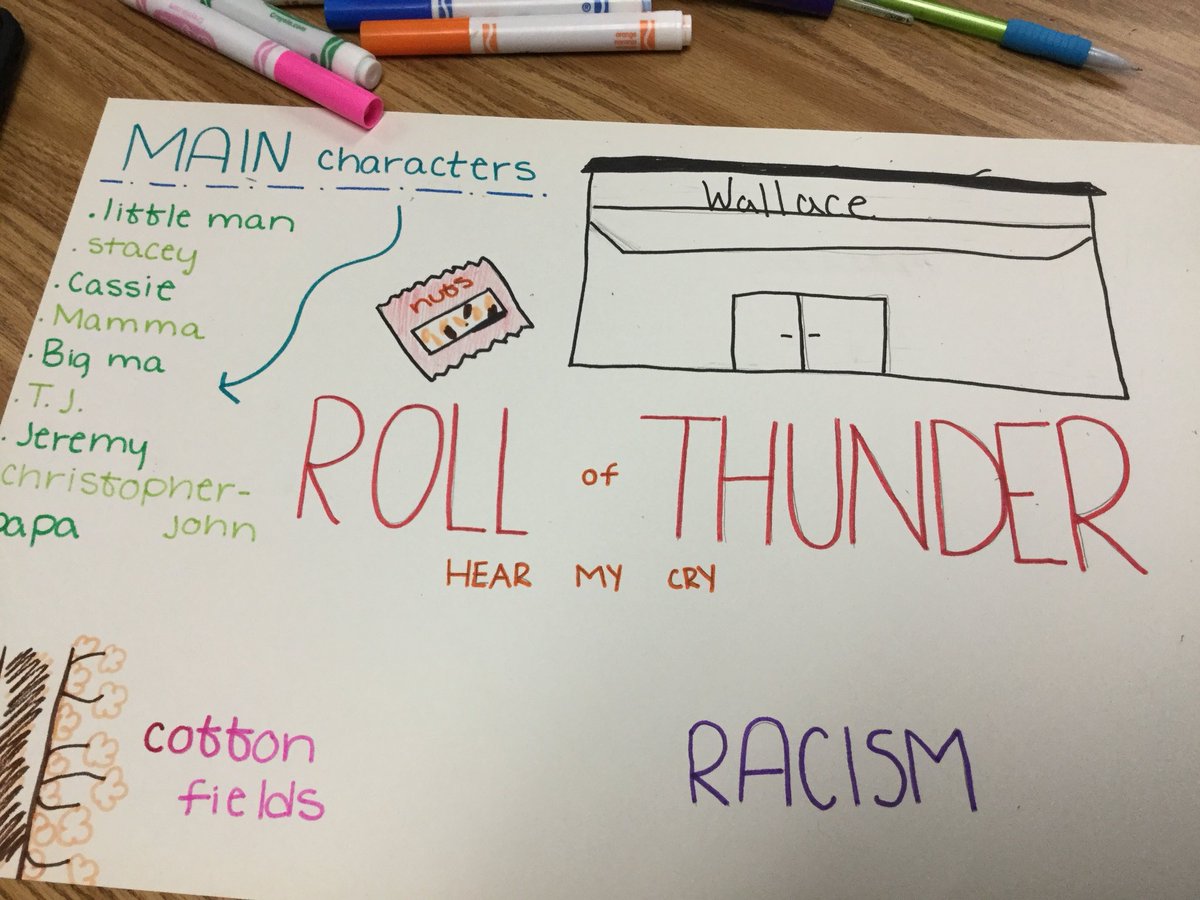 MAIN characters
. little man
. stacey
. Cassie
. Mamma
. Big ma
. T.J.
. Jeremy
christopher-
john
papa
nuts
Wallace
ROLL of THUNDER
HEAR MY CRY
cotton
fields
RACISM